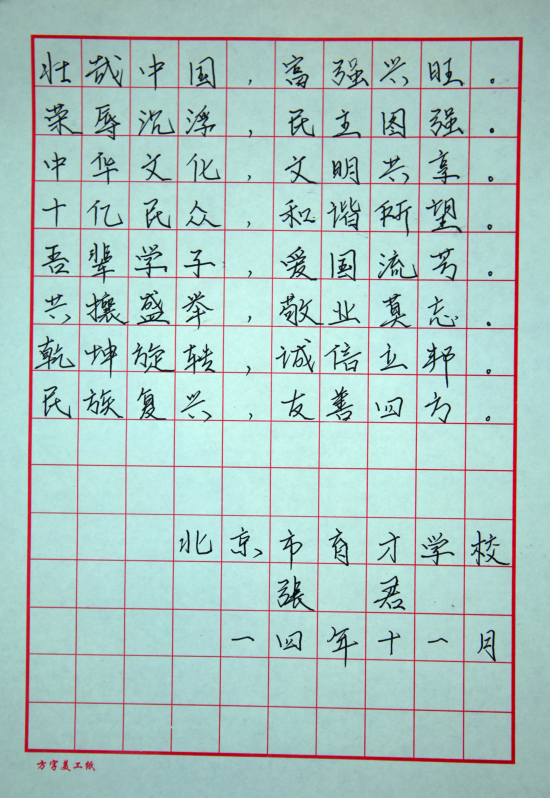 壮哉中国，富强兴旺。
荣辱沉浮，民主图强。
中华文化，文明共享。
十亿民众，和谐所望。
吾辈学子，爱国流芳。
共攘盛举，敬业莫忘。
乾坤旋转，诚信立邦。
民族复兴，友善四方。
北京市育才学校
張君
一四年十一月
方字美工纸